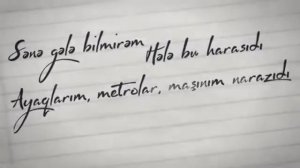 Sənə gələ bilmirəm Hələ bu harasıdı
Ayaqlarım, metrolar, maşınım narazıdı